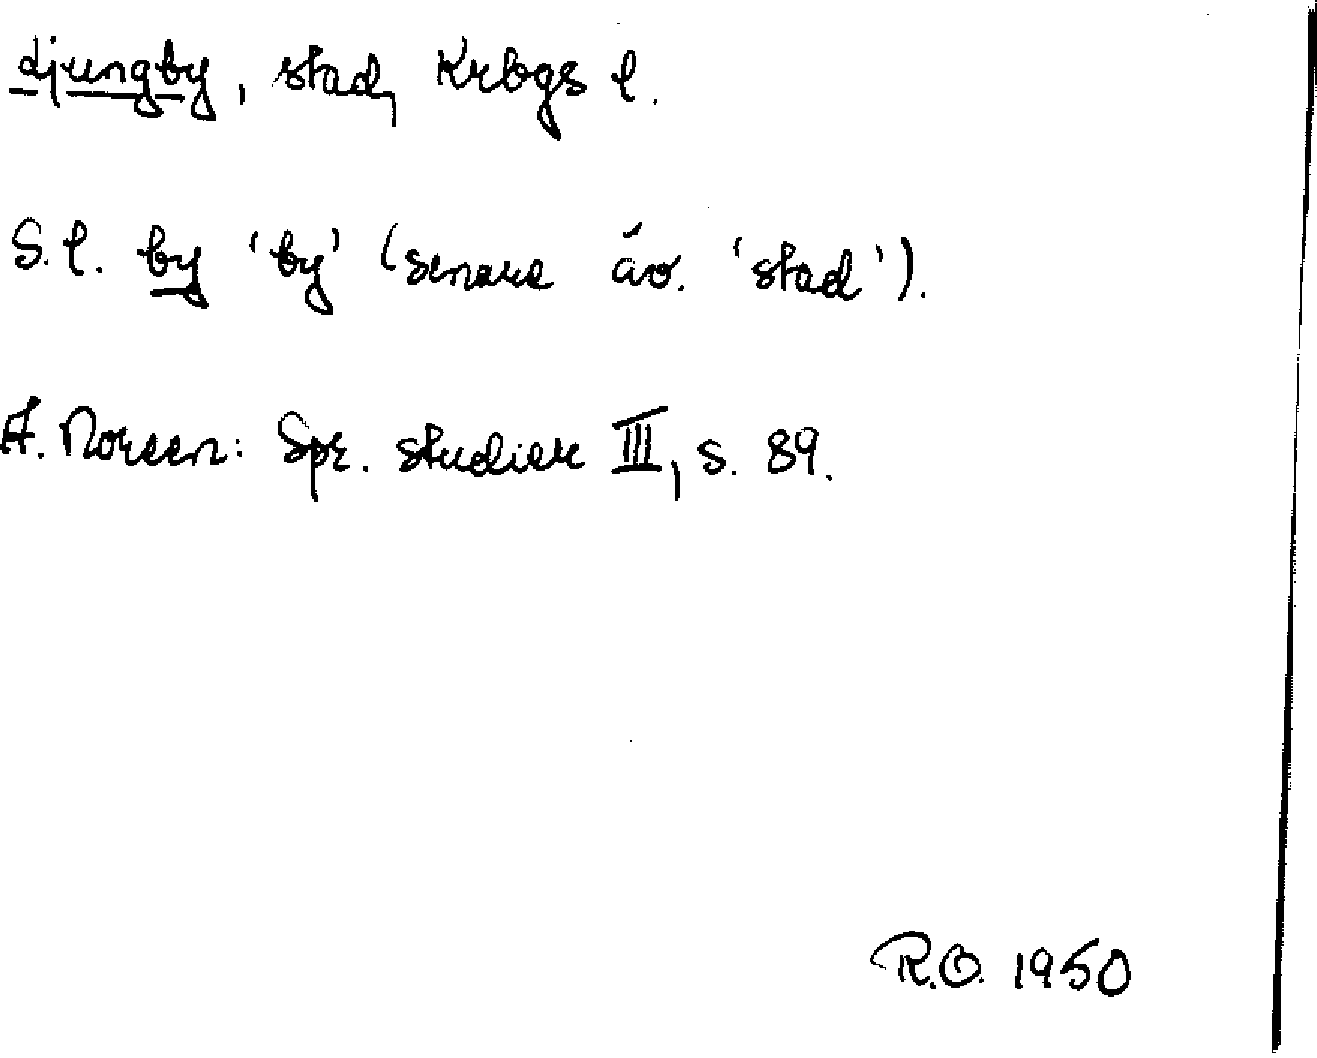 Ljungby, stad, Krbgs l.
S.l. by 'by' (senare äv. 'stad').
A. Noreen: Spr. studier III, s. 89.
R.O. 1950